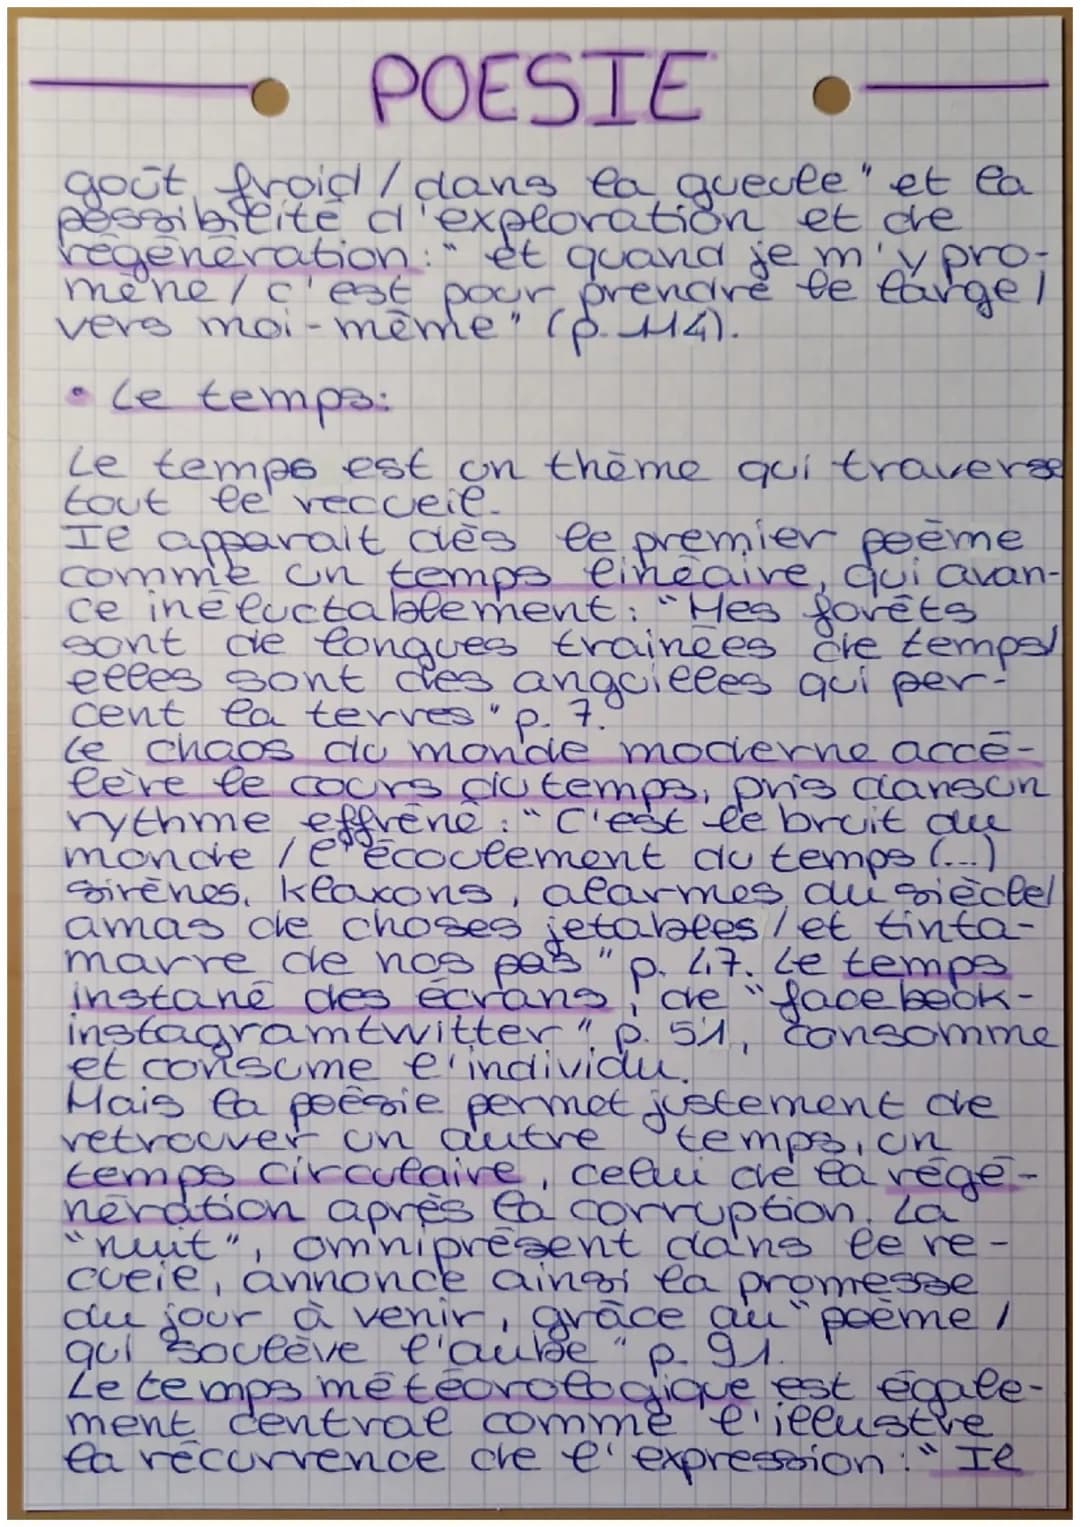 POESIE
goût froid / dans la gueule" et la
possibilité d'exploration et de
régénération : "et quand je m'y pro-
mène / c'est pour prendre le large /
vers moi-même" (p. 114).
• Le temps :
Le temps est un thème qui traverse
tout le reccueil.
Il apparait dès le premier poème
comme un temps linéaire, qui avan-
ce inéluctablement : "Mes forêts
sont de longues trainées de temps/
elles sont des anguilles qui per-
cent la terres" p. 7.
Le chaos du monde moderne accé-
lère le cours du temps, pris dans un
rythme effréné : "C'est le bruit du
monde / l'écoulement du temps (...)
sirènes, klaxons, alarmes du siècle/
amas de choses jetables / et tinta-
marre de nos pas" p. 47. Le temps
instané des écrans, de "facebook-
instagramtwitter" p. 51, consomme
et consume l'individu.
Mais la poésie permet justement de
retrouver un autre temps, un
temps circulaire, celui de la régé-
nération après la corruption. La
"nuit", omniprésent dans le re-
cueil, annonce ainsi la promesse
du jour à venir, grâce au "poème /
qui soulève l'aube" p. 91.
Le temps météorologique est égale-
ment central comme l'illustre
la récurrence de l'expression : "Il